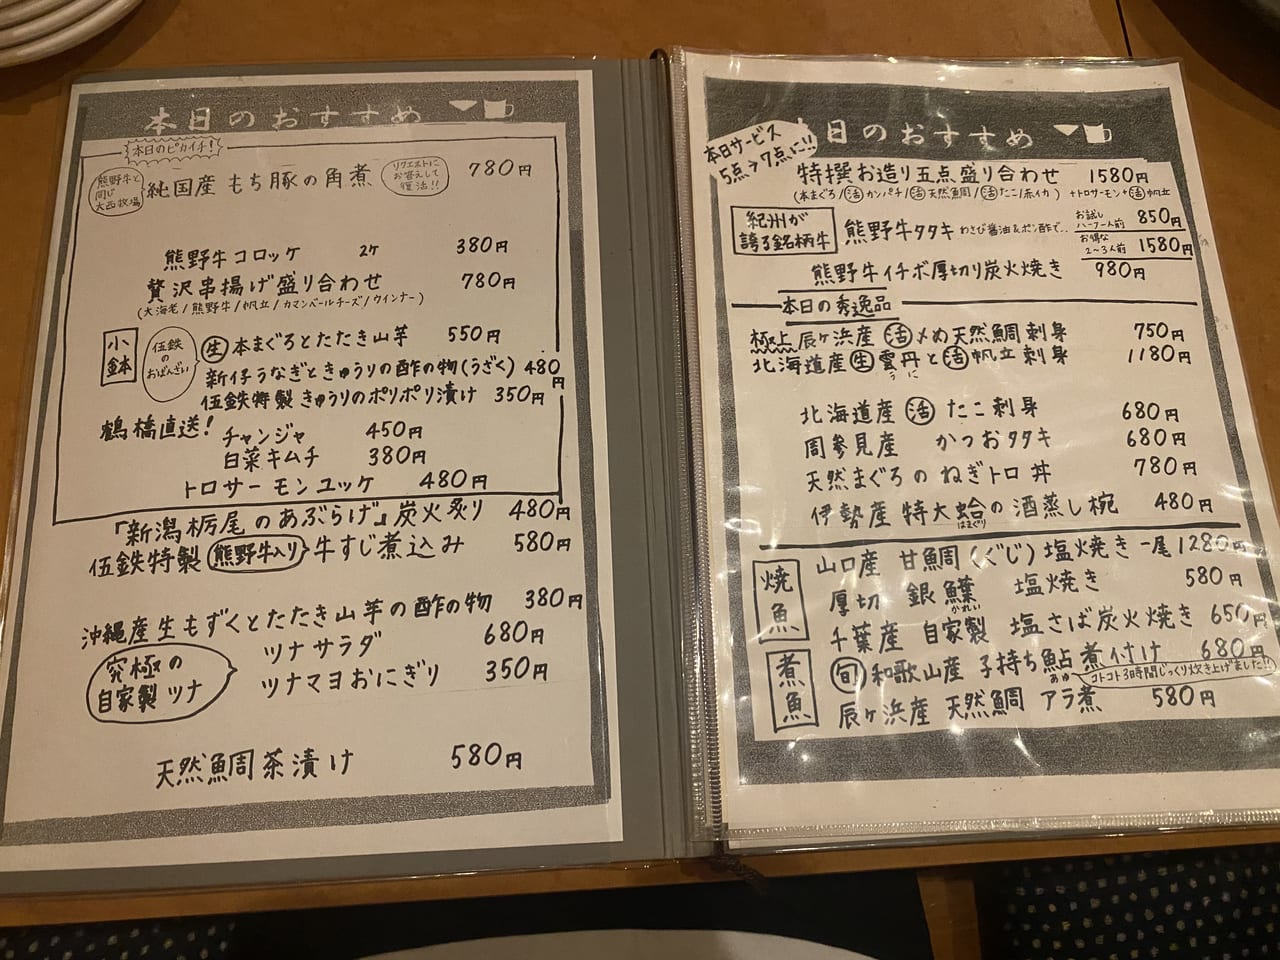 本日のおすすめ
本日のピカイチ!
熊野牛と
同じ
大西牧場
純国産 もち豚の角煮
リクエストに
お答えして
復活!!
780円
熊野牛コロッケ 2ケ 380円
贅沢串揚げ盛り合わせ 780円
(大海老/熊野牛/帆立/カマンベールチーズ/ウインナー)
小鉢
伍鉄
の
おばんざい
生 本まぐろとたたき山芋 550円
新仔うなぎときゅうりの酢の物(うざく) 480円
伍鉄特製 きゅうりのポリポリ漬け 350円
鶴橋直送!
チャンジャ 450円
白菜キムチ 380円
トロサーモンユッケ 480円
「新潟栃尾のあぶらげ」炭火炙り 480円
伍鉄特製 熊野牛入り 牛すじ煮込み 580円
沖縄産生もずくとたたき山芋の酢の物 380円
究極の
自家製ツナ
ツナサラダ 680円
ツナマヨおにぎり 350円
天然鯛茶漬け 580円
本日のおすすめ
本日サービス
5点→7点に!!
特撰お造り五点盛り合わせ 1580円
(本まぐろ/活カンパチ/活天然鯛/活たこ/赤イカ) +トロサーモン+活帆立
紀州が
誇る銘柄牛
熊野牛タタキ わさび醤油&ポン酢で..
お試し
ハーフ一人前 850円
お得な
2〜3人前 1580円
熊野牛イチボ厚切り炭火焼き 980円
本日の秀逸品
極上 辰ヶ浜産 活〆め天然鯛刺身 750円
北海道産 生雲丹と活帆立刺身 1180円
うに
北海道産 活たこ刺身 680円
周参見産 かつおタタキ 680円
天然まぐろのねぎトロ丼 780円
伊勢産 特大蛤の酒蒸し椀 480円
はまぐり
焼魚
山口産 甘鯛(ぐじ)塩焼き 一尾 1280円
厚切 銀鰈 塩焼き 580円
かれい
千葉産 自家製 塩さば炭火焼き 650円
煮魚
旬 和歌山産 子持ち鮎煮付け 680円
あゆ
コトコト3時間じっくり炊き上げました!!
辰ヶ浜産 天然鯛 アラ煮 580円